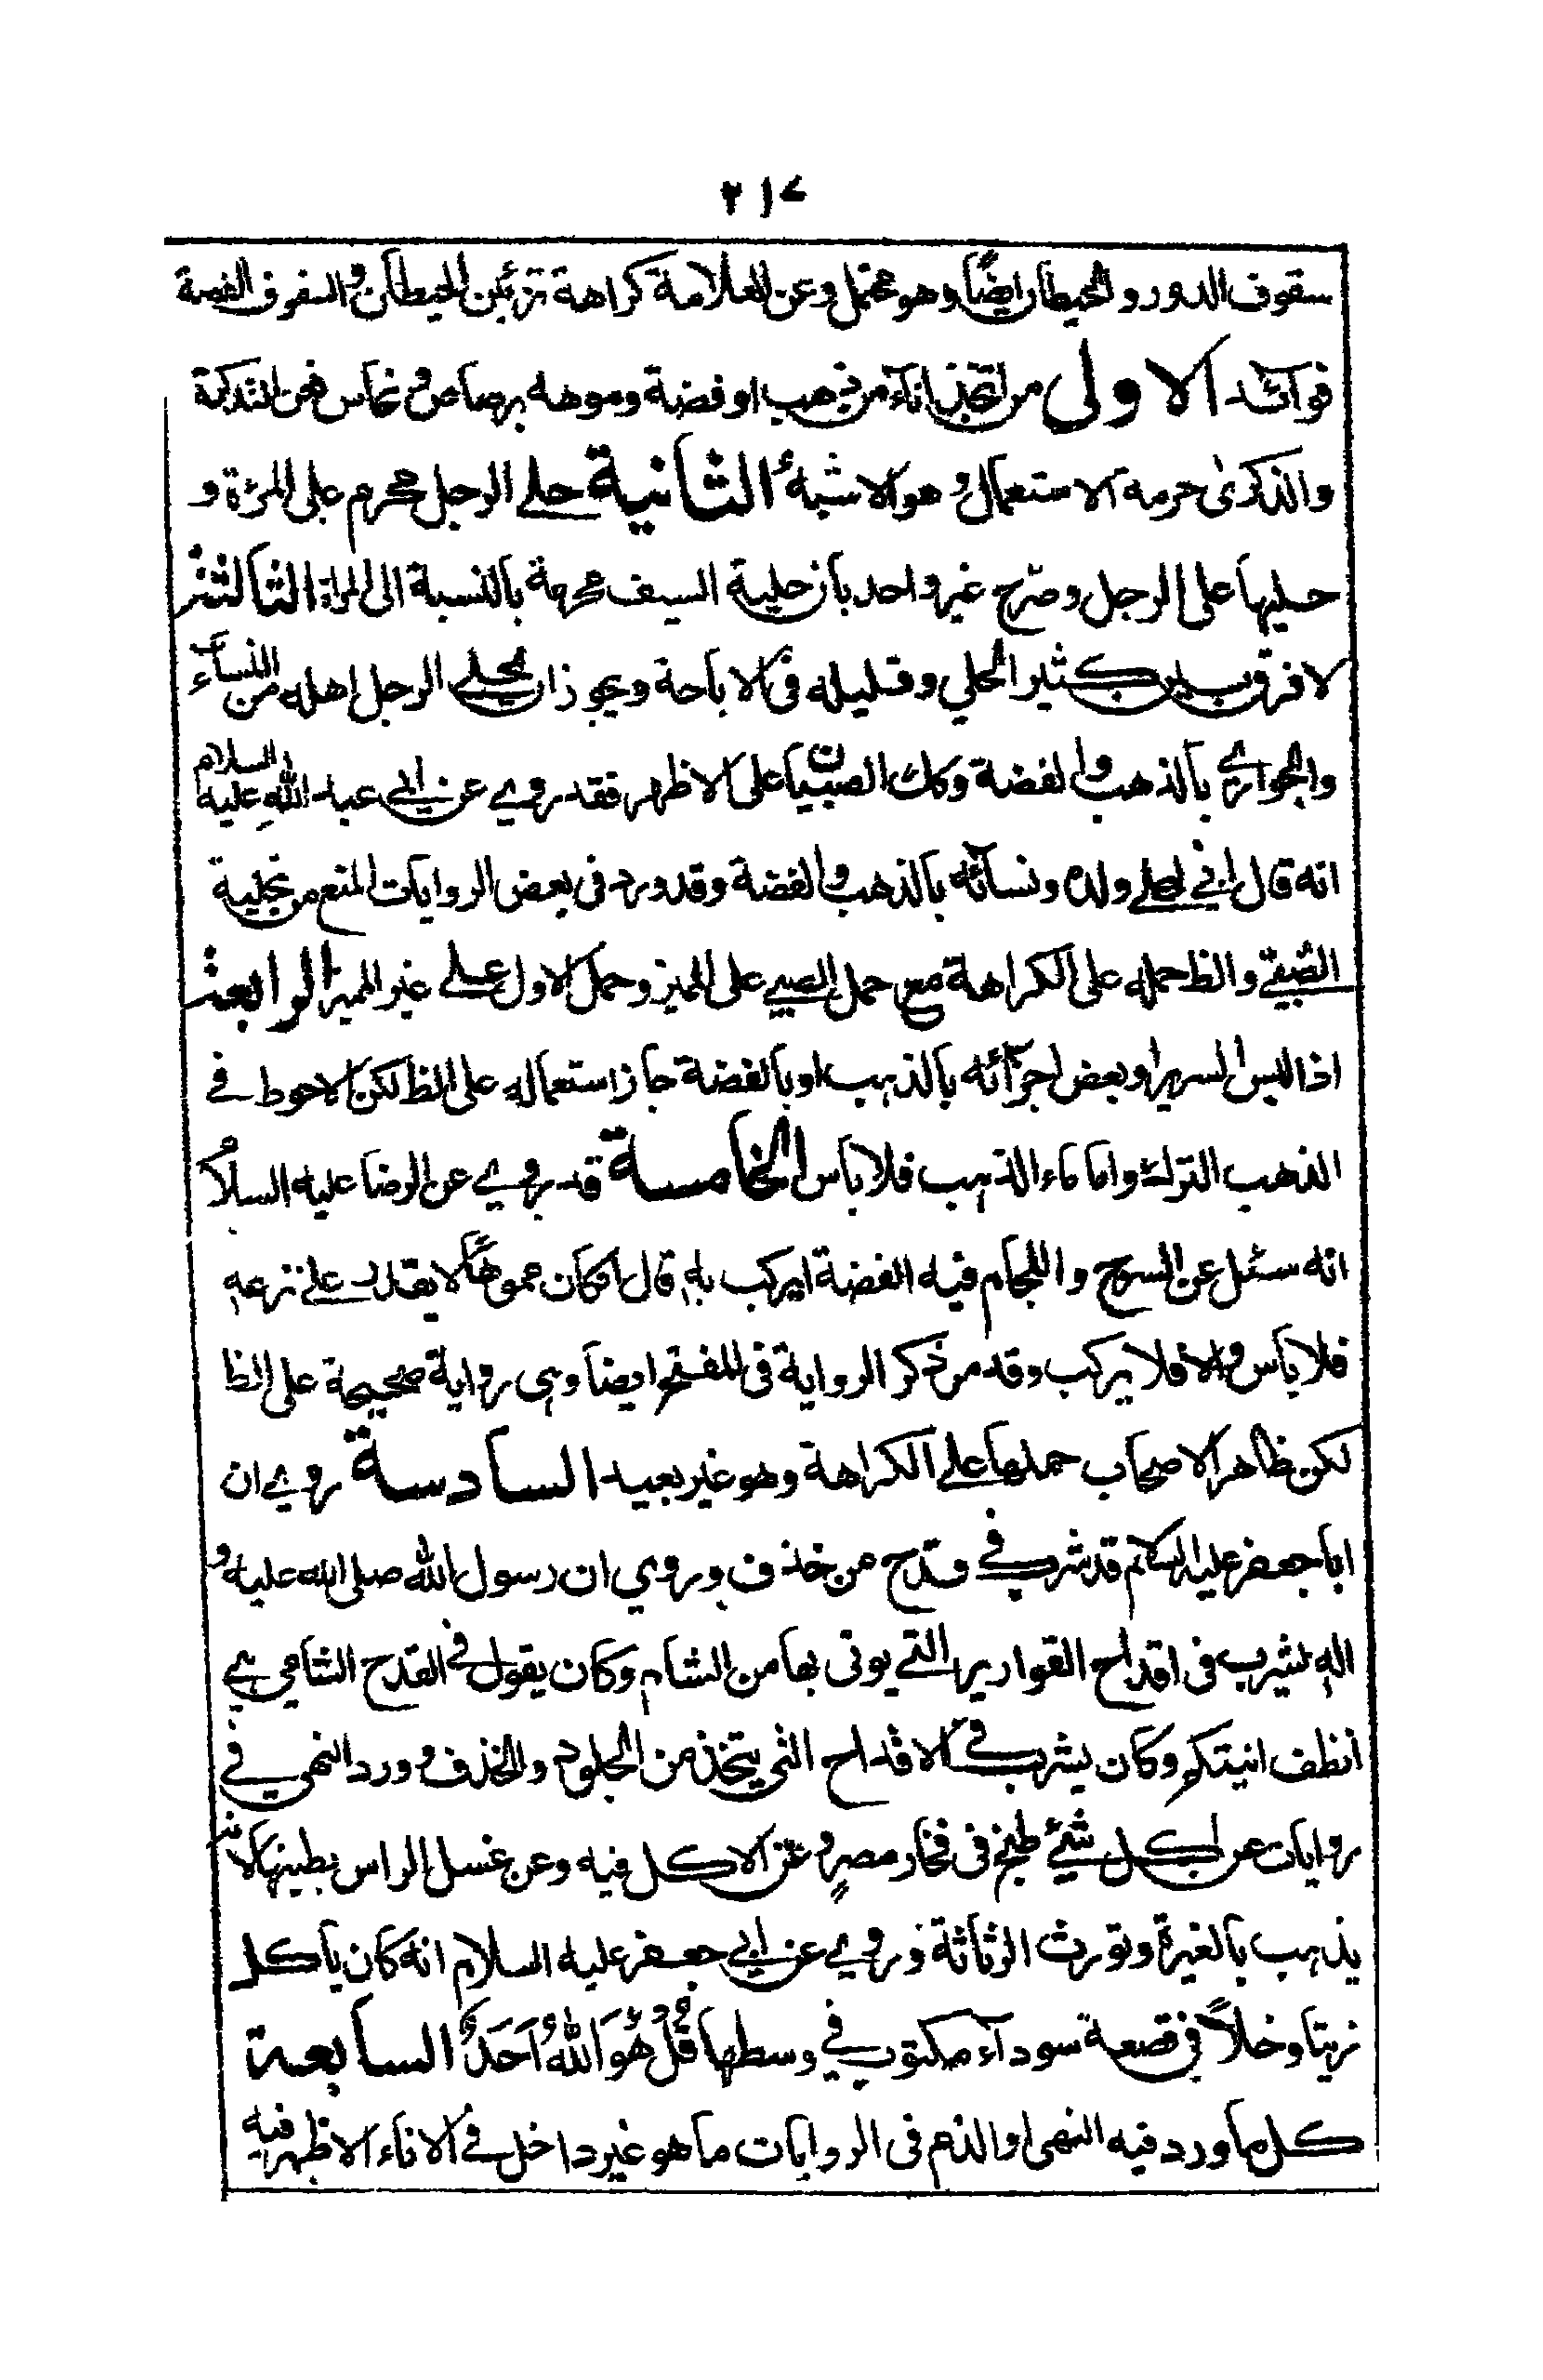 ٢١٧
سقوف الدور والحيطان ايضاً وهو محتمل وعن العلامة كراهة تزئين الحيطان والسقوف الفضة
فوائد الاولى من اتخذ اناء من ذهب او فضة وموهه برصاص و نحاس فعن التذكرة
والذكرى حرمة الاستعمال وهو الاشبهُ الثانية حلي الرجل محرم على المرئة و
حليها على الرجل وصرّح غير واحد بان حلية السيف محرمة بالنسبة الى المراة الثالثة
لا فرق بين كثير الحلي وقليله في الاباحة ويجوز ان يحلي الرجل اهله من النساء
والجواري بالذهب والفضة وكك الصبيان على الاظهر فقد روي عن ابي عبد الله عليه السلام
انه قال اني لحلي ولده ونسائه بالذهب والفضة وقد ورد في بعض الروايات المنع من تحلية
الصّبي والظ حمله على الكراهة مع حمل الصبي على المميز وحمل الاول على غير المميز الرابعة
اذا البس السرير او بعض اجزائه بالذهب او بالفضة جاز استعماله على الظ لكن الاحوط في
الذهب الترك واما ماء الذهب فلا باس الخامسة قد روي عن الرضا عليه السلام
انه سئل عن السرج واللجام فيه الفضة ايركب به قال ان كان مموهاً لا يقدر على نزعه
فلا باس والا فلا يركب وقد مر ذكر الرواية في المفتح ايضا وهي رواية صحيحة على الظا
لكن ظاهر الاصحاب حملها على الكراهة وهو غير بعيد السادسة روي ان
ابا جعفر عليه السلام قد شرب في قدح من خذف وروي ان رسول الله صلى الله عليه و
اله يشرب في اقداح القوارير التي يوتى بها من الشام وكان يقول في القدح الشامي هي
انظف انيتكم وكان يشرب في الاقداح التي يتخذ من الجلود والخذف و ورد النهي في
روايات عن اكل شيئ طبخ في فخار مصرٍ و عن الاكل فيه وعن غسل الراس بطينها لانه
يذهب بالغيرة وتورث الرثاثة وروي عن ابي جعفر عليه السلام انه كان ياكل
زيتا وخلاً في قصعة سوداء مكتوب في وسطها قُلْ هُوَ اللهُ اَحَدٌ السابعة
كل ما ورد فيه النهى او الذم في الروايات ما هو غير داخل في الاناء الاظهر فيه